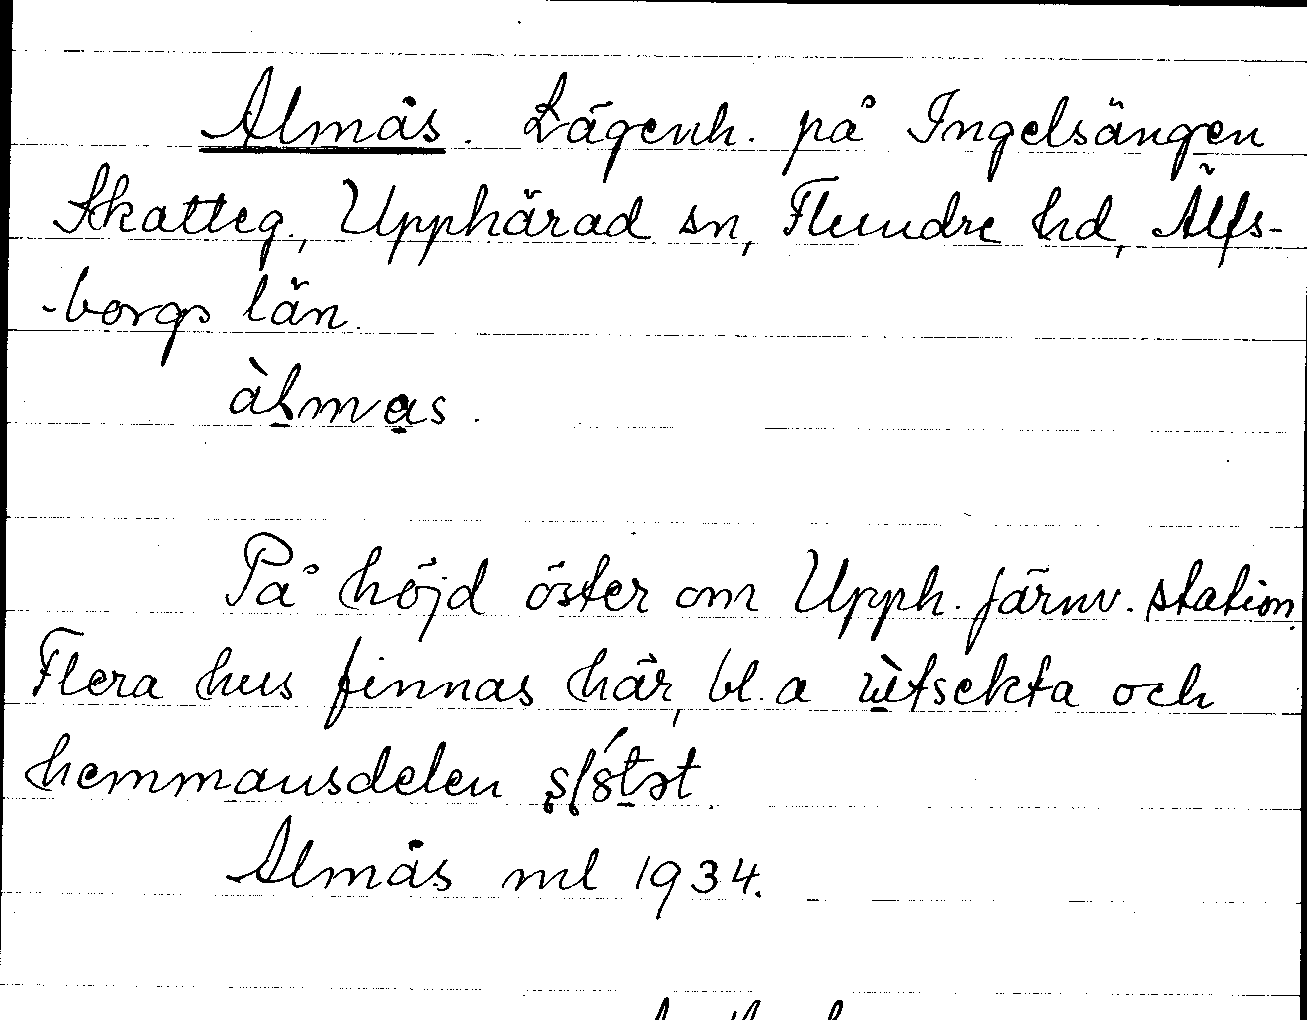 Almås. Lägenh. på Ingelsängen
Skatteg., Upphärad sn, Flundre hd, Älfs-
-borgs län.
àlmas.
På höjd öster om Upph. järnv. station.
Flera hus finnas här, bl. a ùtsekta och
hemmansdelen
Almås ml 1934.